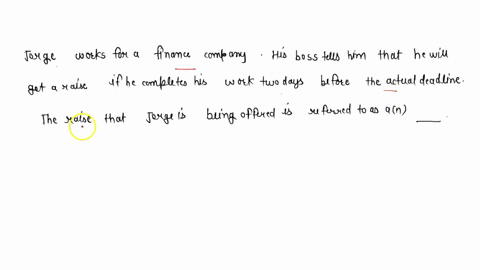 Jorge works for a finance company. His boss tells him that he will
get a raise if he completes his work two days before the actual deadline.
The raise that Jorge is being offered is referred to as a(n) ____.